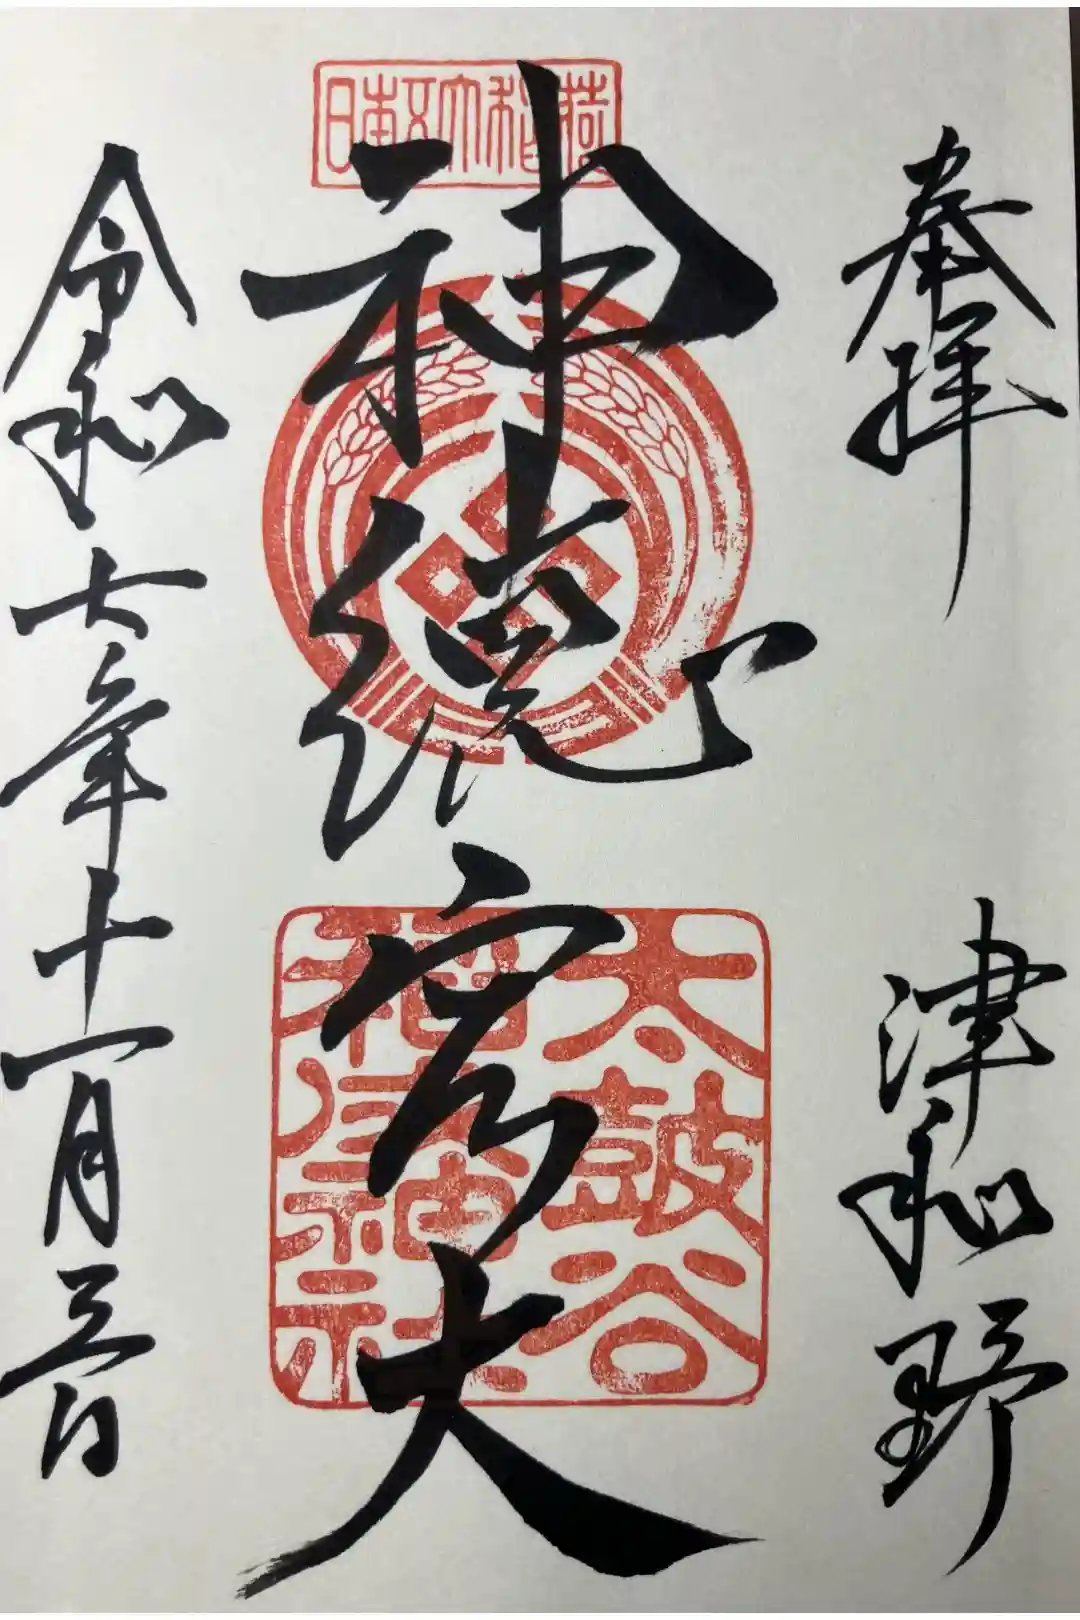 奉拝
津和野
日本五大稲荷
神徳宏大
太皷谷
稲成神社
令和七年十一月三日